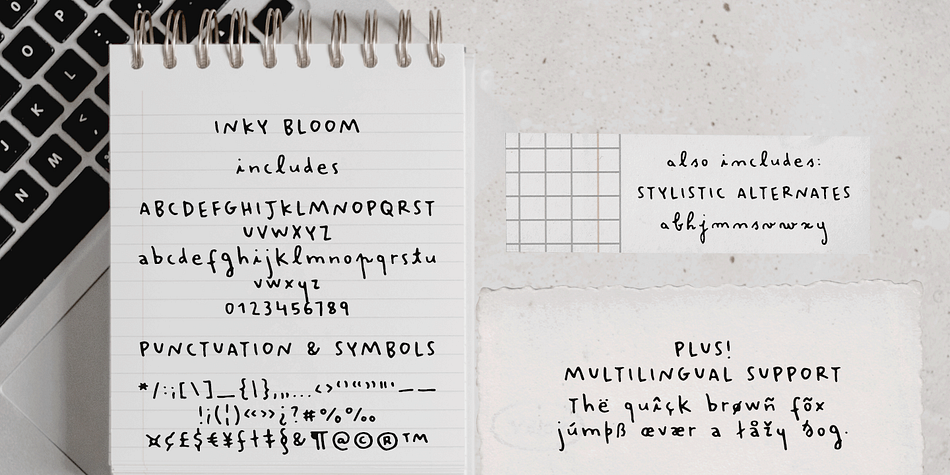 O
P
L
K
J
N
<
,
INKY BLOOM
includes
ABCDEFGHIJKLMNOPQRST
UVWXYZ
abcdefghijklmnopqrstu
vwxyz
0123456789
PUNCTUATION & SYMBOLS
*/:;[\]_{|},„...‹›'‘’“”"'——
!¡(|)«‹››¿?#%%‰
¤¢£$€¥ƒ†‡§&¶@©®™
also includes:
STYLISTIC ALTERNATES
abhjmnsvwxy
PLUS!
MULTILINGUAL SUPPORT
Thë quîçk brøwñ fõx
júmþß œvær a łåžy ðog.